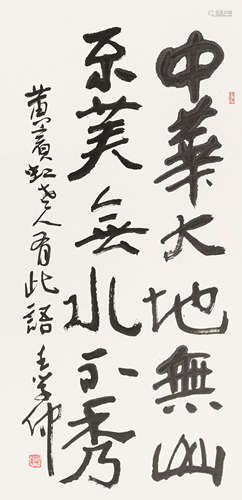 中華大地無山
不美無水不秀
黄賓虹老人有此語 王学仲